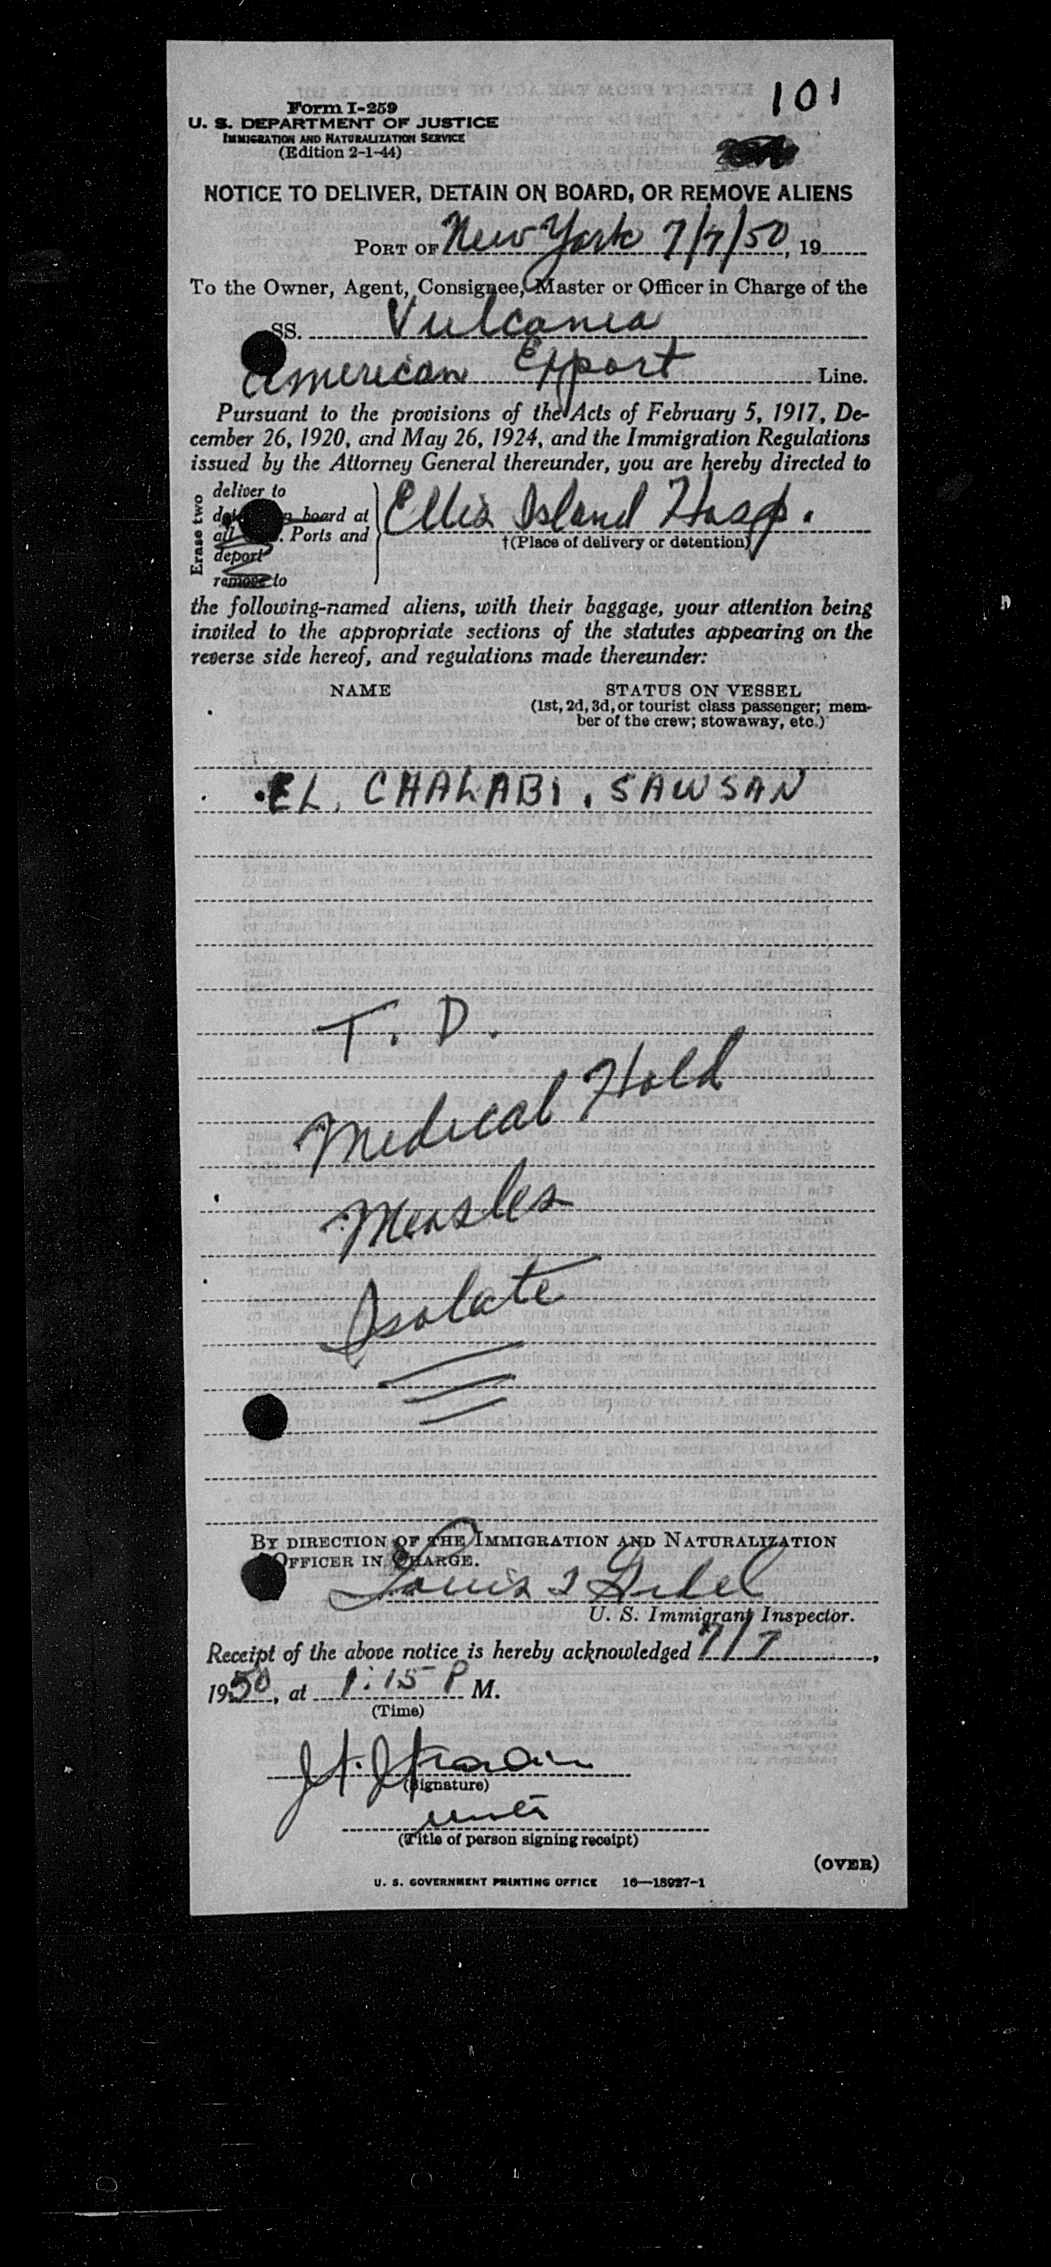 101
Form I-259
U. S. DEPARTMENT OF JUSTICE
IMMIGRATION AND NATURALIZATION SERVICE
(Edition 2-1-44)
NOTICE TO DELIVER, DETAIN ON BOARD, OR REMOVE ALIENS
PORT OF New York 7/7/50, 19
To the Owner, Agent, Consignee, Master or Officer in Charge of the
SS. Vulcania
American Export Line.
Pursuant to the provisions of the Acts of February 5, 1917, De-
cember 26, 1920, and May 26, 1924, and the Immigration Regulations
issued by the Attorney General thereunder, you are hereby directed to
Erase two
deliver to
board at
all Ports and
deport
remove to
Ellis Island Hosp.
†(Place of delivery or detention)
the following-named aliens, with their baggage, your attention being
invited to the appropriate sections of the statutes appearing on the
reverse side hereof, and regulations made thereunder:
NAME STATUS ON VESSEL
(1st, 2d, 3d, or tourist class passenger; mem-
ber of the crew; stowaway, etc.)
EL, CHALABI, SAWSAN
T. D.
Medical Hold
Measles
Isolate
BY DIRECTION OF THE IMMIGRATION AND NATURALIZATION
OFFICER IN CHARGE.
Louis
U. S. Immigrant Inspector.
Receipt of the above notice is hereby acknowledged 7/7,
1950, at 1:15 P M.
(Time)
(Signature)
(Title of person signing receipt)
(OVER)
U. S. GOVERNMENT PRINTING OFFICE 16—18927-1